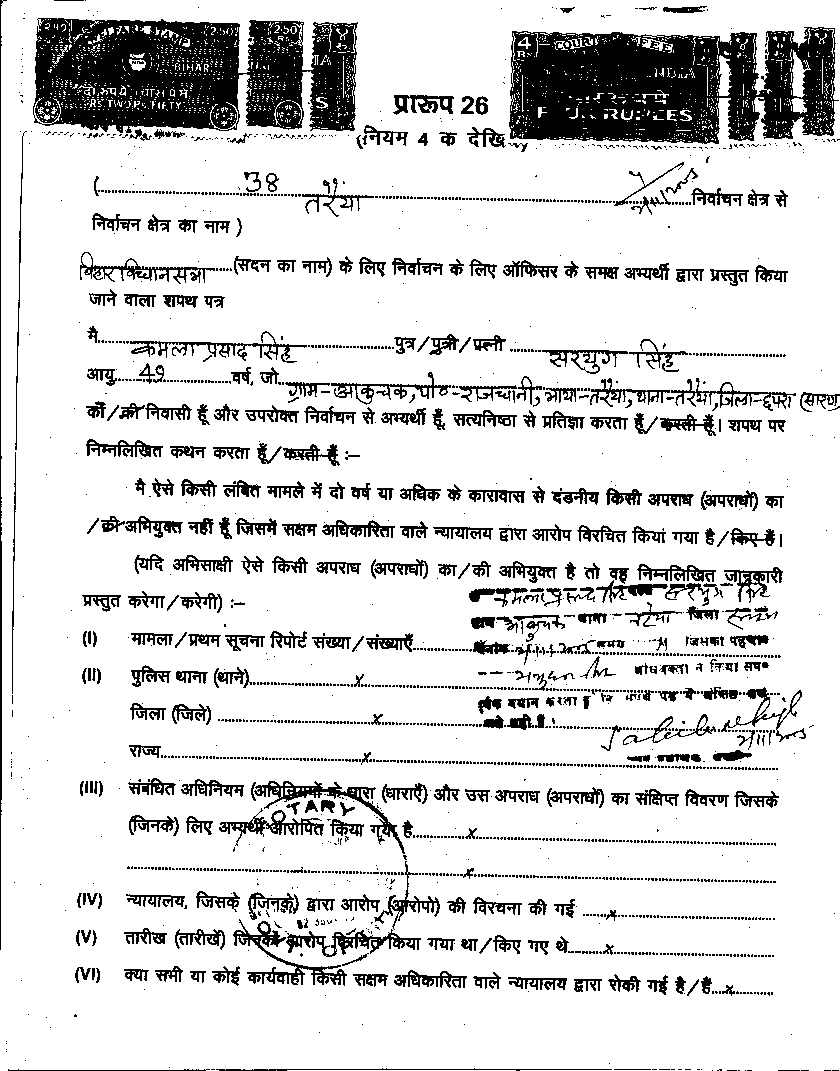 250 WELFARE STAMP 250 250
BIHAR
दो रुपये पचास पैसे
RS. TWO PS. FIFTY
4 COURT FEE
INDIA
FOUR RUPEES
प्रारूप 26
(नियम 4 क देखि
(....38 तरैया....निर्वाचन क्षेत्र से
निर्वाचन क्षेत्र का नाम )
बिहार विधान सभा....(सदन का नाम) के लिए निर्वाचन के लिए ऑफिसर के समक्ष अभ्यर्थी द्वारा प्रस्तुत किया
जाने वाला शपथ पत्र
मै....कमला प्रसाद सिंह....पुत्र/पुत्री/पत्नी....सरयुग सिंह
आयु....49....वर्ष, जो....ग्राम-आकुचक, पो०-राजधानी, भाया-तरैया, थाना-तरैया, जिला-छपरा (सारण
कॉ/की निवासी हूँ और उपरोक्त निर्वाचन से अभ्यर्थी हूँ, सत्यनिष्ठा से प्रतिज्ञा करता हूँ/करती हूँ। शपथ पर
निम्नलिखित कथन करता हूँ/करती हूँ :–
मै ऐसे किसी लंबित मामले में दो वर्ष या अधिक के कारावास से दंडनीय किसी अपराध (अपराधों) का
/की अभियुक्त नहीं हूँ जिसमें सक्षम अधिकारिता वाले न्यायालय द्वारा आरोप विरचित किया गया है/किए हैं।
(यदि अभिसाक्षी ऐसे किसी अपराध (अपराधों) का/की अभियुक्त है तो वह निम्नलिखित जानकारी
प्रस्तुत करेगा/करेगी) :–
कमला प्रसाद सिंह सरयुग सिंह
आकुचक थाना तरैया जिला सारण
(I) मामला/प्रथम सूचना रिपोर्ट संख्या/संख्याएँ
जिसका पहचान
(II) पुलिस थाना (थाने)....x
जिला (जिले)....x
राज्य....x
(III) संबंधित अधिनियम (अधिनियमों के धारा (धाराएँ) और उस अपराध (अपराधों) का संक्षिप्त विवरण जिसके
(जिनके) लिए अभ्यर्थी आरोपित किया गया है....x
....x
NOTARY
(IV) न्यायालय, जिसके (जिनके) द्वारा आरोप (आरोपो) की विरचना की गई....x
(V) तारीख (तारीखें) जिनको आरोप विरचित किया गया था/किए गए थे....x
(VI) क्या सभी या कोई कार्यवाही किसी सक्षम अधिकारिता वाले न्यायालय द्वारा रोकी गई है/हैं....x